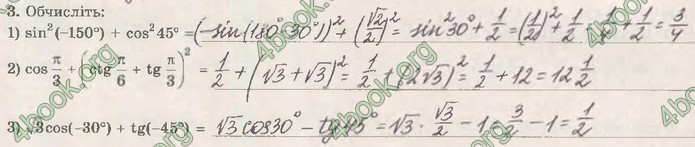 3. Обчисліть:
1) sin²(–150°) + cos²45° = (–sin(180°–30°))² + (√2/2)² = sin²30° + 1/2 = (1/2)² + 1/2 = 1/4 + 1/2 = 3/4
2) cos π/3 + (ctg π/6 + tg π/3)² = 1/2 + (√3 + √3)² = 1/2 + (2√3)² = 1/2 + 12 = 12 1/2
3) √3cos(–30°) + tg(–45°) = √3 cos30° – tg45° = √3 · √3/2 – 1 = 3/2 – 1 = 1/2
4book.org